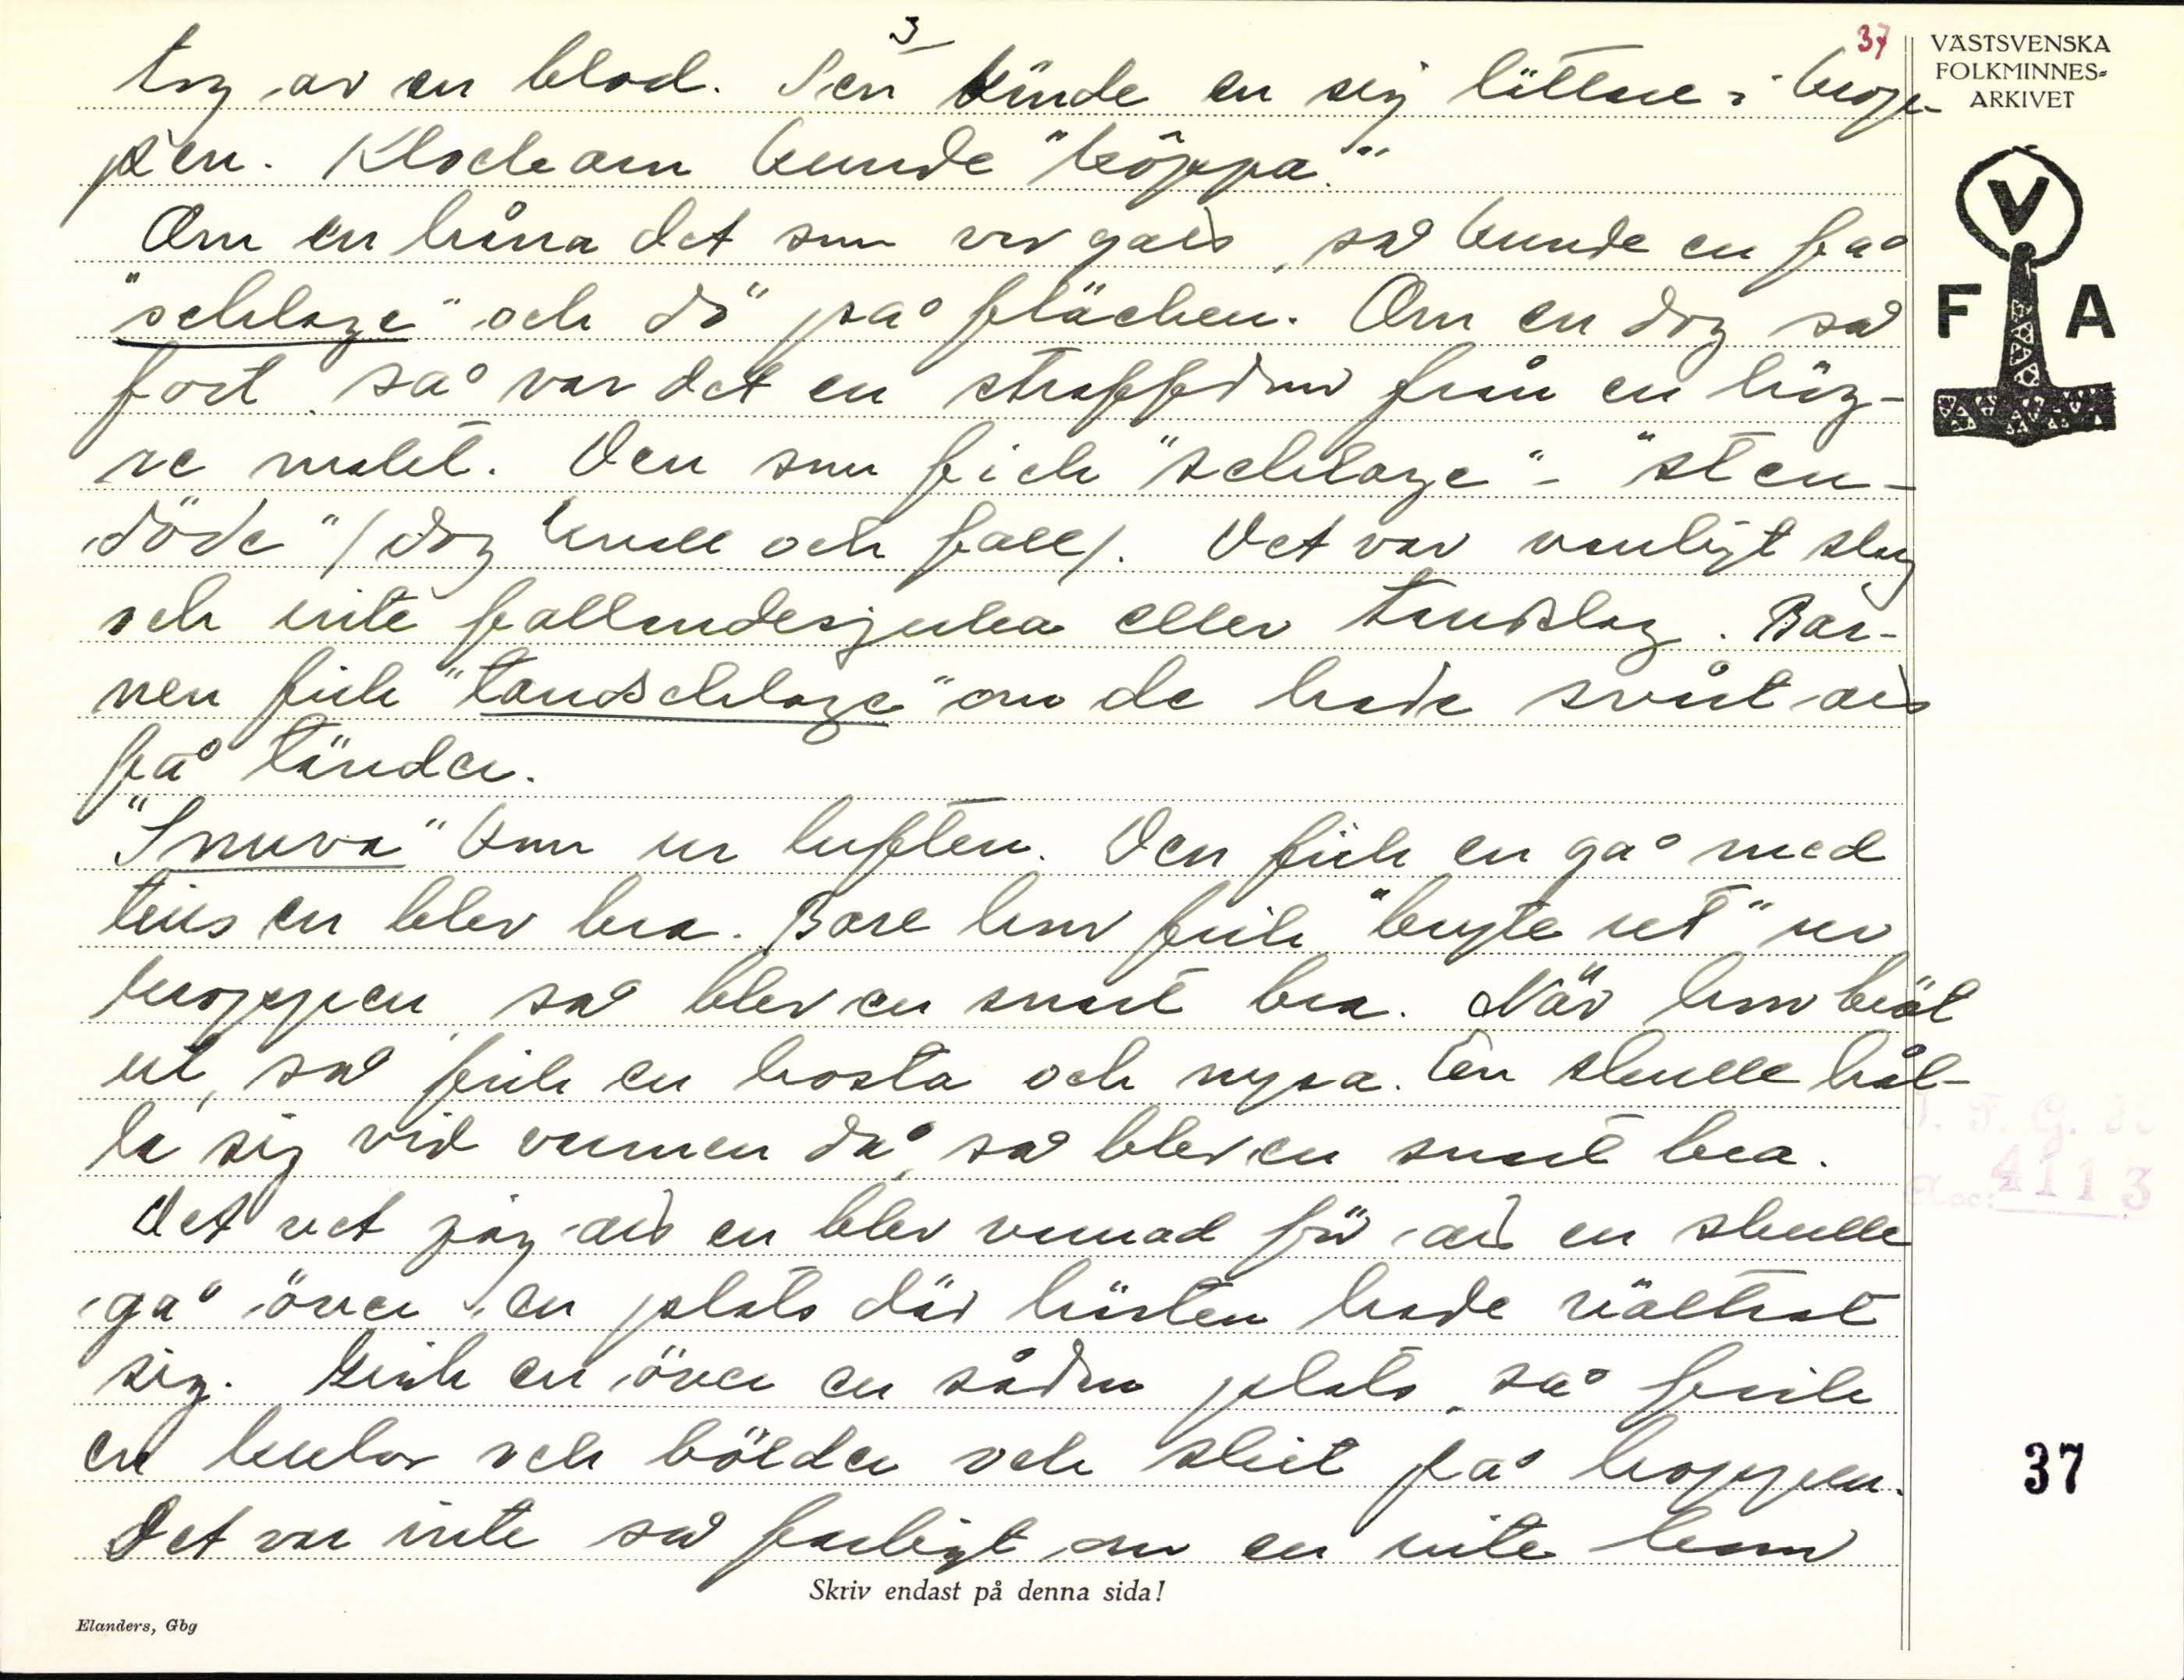 3
37
VÄSTSVENSKA
FOLKMINNES=
ARKIVET
tog av en blod. Sen kände en sig lättare i krop-
pen. Klockarn kunde "köppa".
Om en håna det som var galet, så kunde en få
"schlage" och dö på fläcken. Om en dog så
fort, så var det en straffdom från en hög-
re makt. Den som fick "schlage" - "sten-
döde" (dog knall och fall). Det var vanligt slag
och inte fallandesjuka eller tandslag. Bar-
nen fick "tandschlage" om de hade svårt att
få tänder.
"Snuva" kom ur luften. Den fick en gå med
tills en blev bra. Bare hon fick "bryte ut" ur
kroppen, så blev en snart bra. När hon bröt
ut, så fick en hosta och nysa. En skulle hål-
la sig vid värmen då, så blev en snart bra.
Det vet jag att en blev varnad för att en skulle
gå över en plats där hästen hade vältrat
sig. Gick en över en sådan plats, så fick
en bulor och bölder och skit på kroppen.
Det var inte så farligt om en inte kom
V
F A
4113
37
Skriv endast på denna sida!
Elanders, Gbg